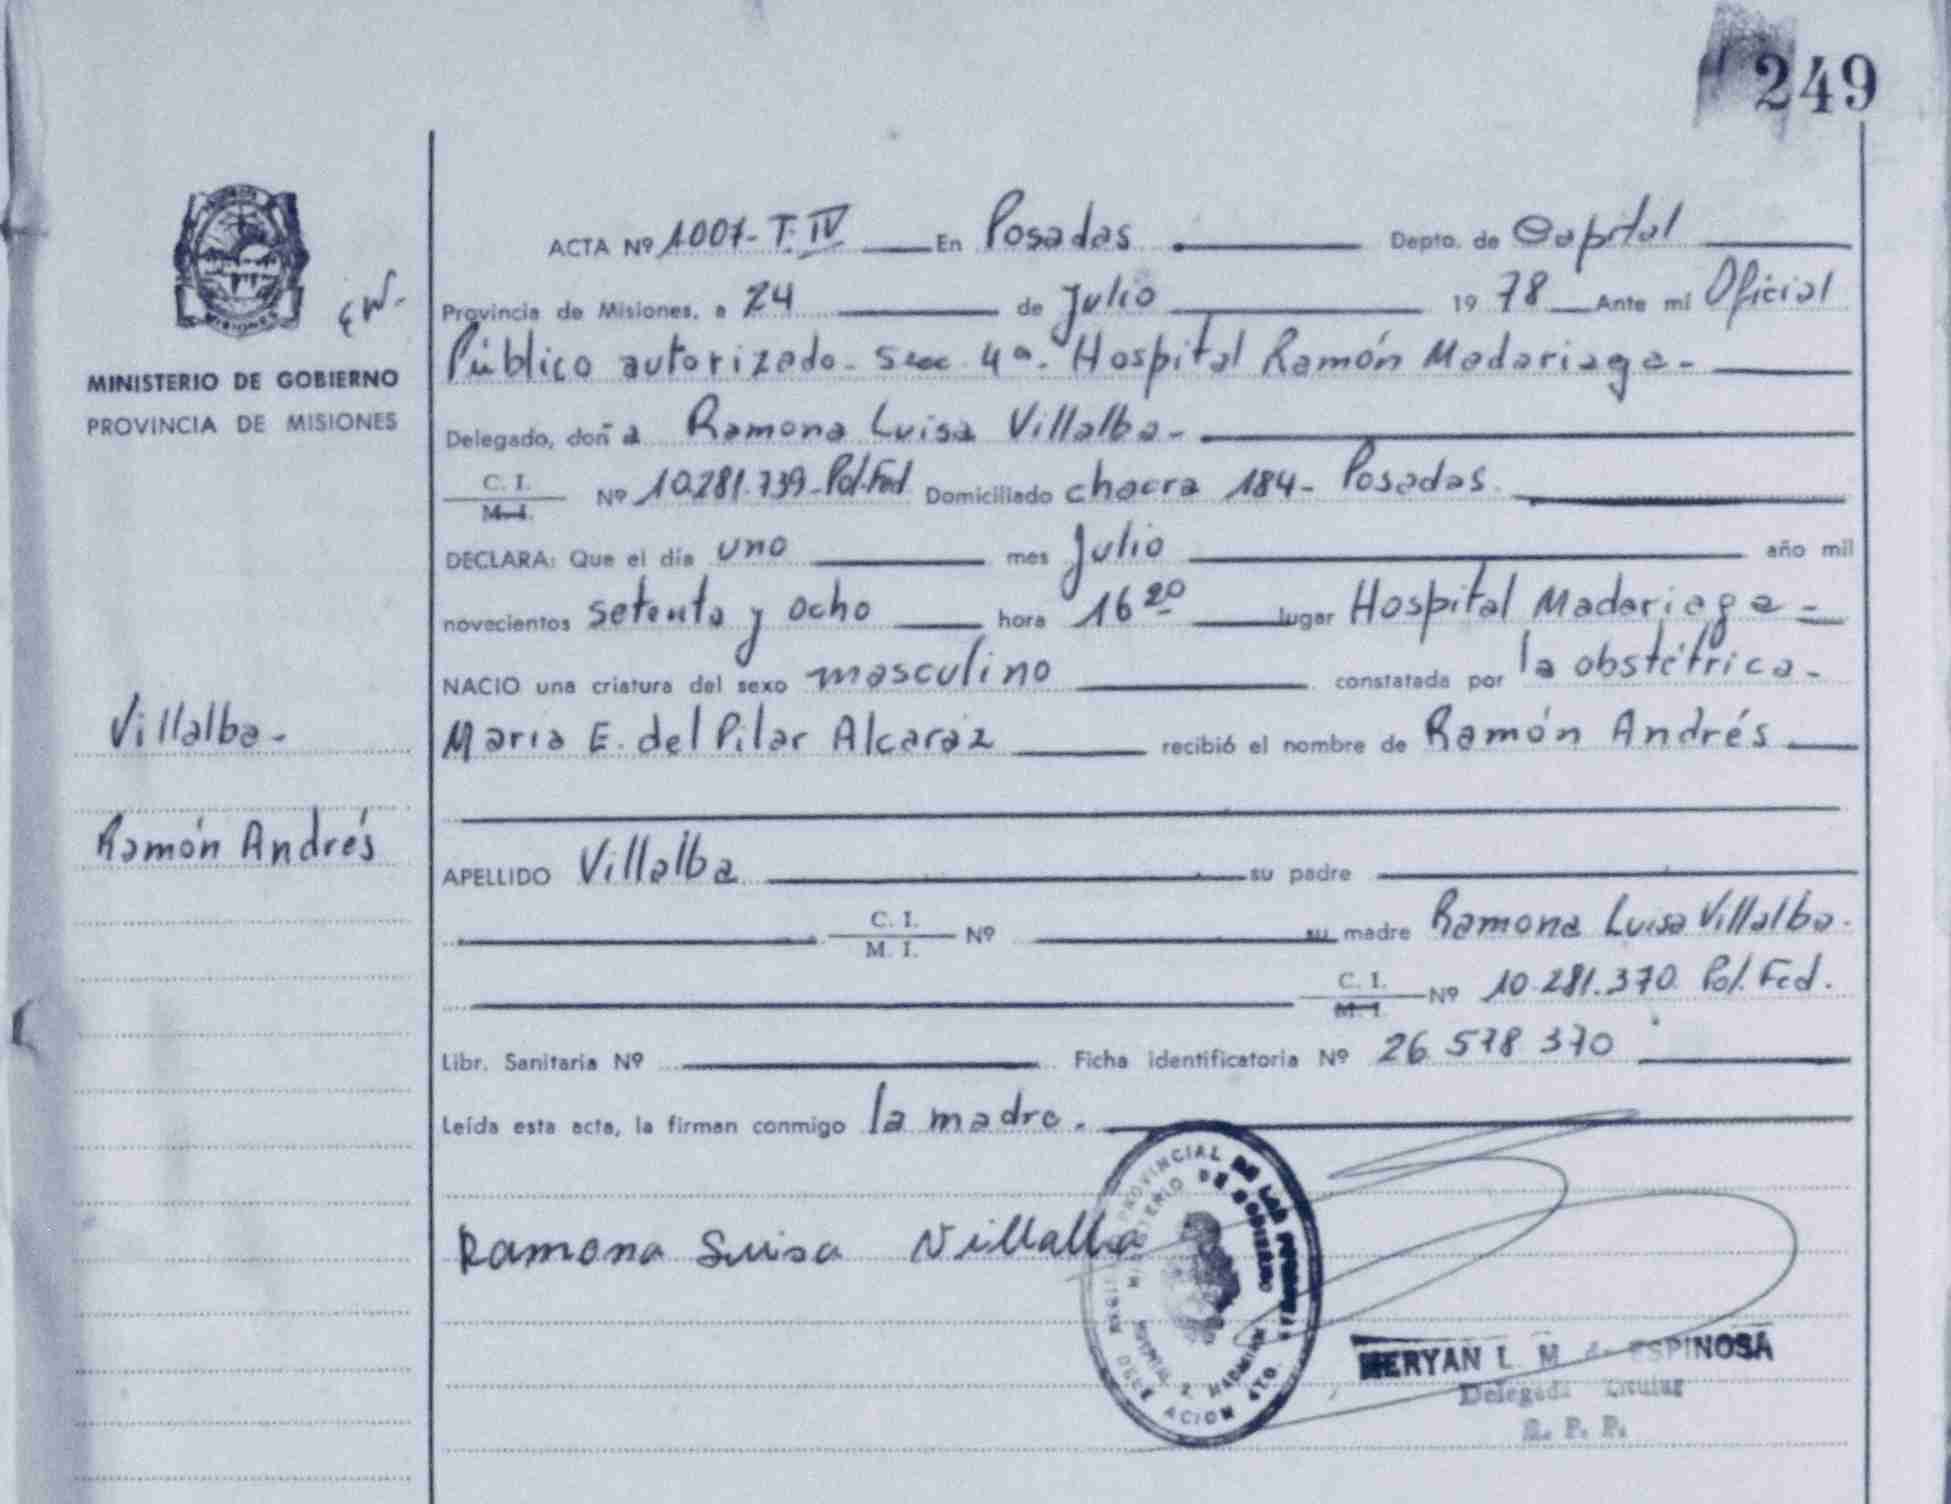 249
MISIONES
MINISTERIO DE GOBIERNO
PROVINCIA DE MISIONES
Villalba.-
Ramón Andrés
ACTA Nº 1007-T. IV En Posadas Depto. de Capital
Provincia de Misiones, a 24 de Julio 19 78 Ante mi Oficial
Público autorizado. Secc. 4ª. Hospital Ramón Madariaga-
Delegado, doña Ramona Luisa Villalba-
C. I.
M. I. Nº 10.281.739-Pol.Fed Domiciliado chacra 184- Posadas.
DECLARA: Que el día uno mes Julio año mil
novecientos setenta y ocho hora 16 20 lugar Hospital Madariaga-
NACIO una criatura del sexo masculino constatada por la obstétrica-
Maria E. del Pilar Alcaraz recibió el nombre de Ramón Andrés
APELLIDO Villalba su padre
C. I.
M. I. Nº su madre Ramona Luisa Villalba.
C. I.
M. I. Nº 10.281.370 Pol. Fed.
Libr. Sanitaria Nº Ficha identificatoria Nº 26 578 370
Leída esta acta, la firman conmigo la madre.
Ramona Luisa Villalba
PROVINCIAL DE LAS
MINISTERIO DE GOBIERNO
MERYAN L. M. de ESPINOSA
Delegada Titular
R. P. P.